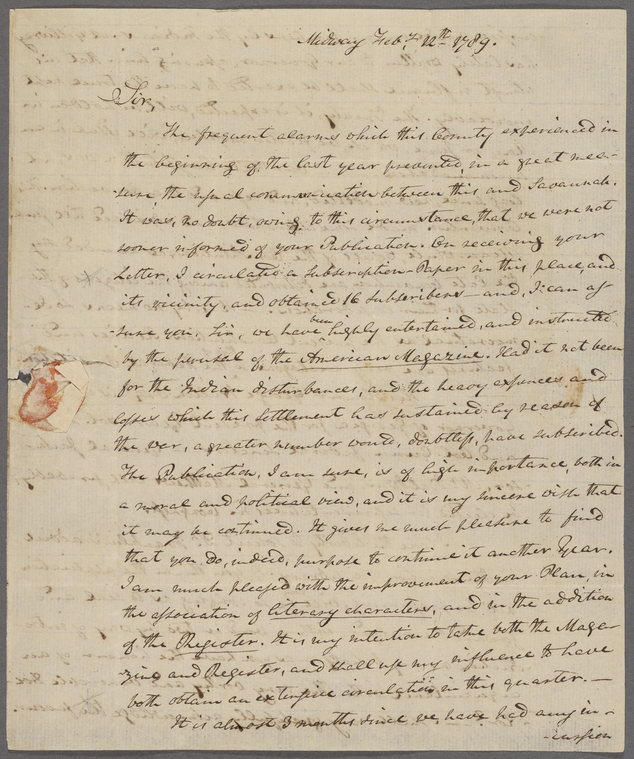 Midway Feby. 12th. 1789.
Sir,
The frequent alarms which this County experienced in
the beginning of the last year prevented, in a great mea-
-sure the usual communication between this and Savannah.
It was, no doubt, owing to this circumstance, that we were not
sooner informed of your Publication. On receiving your
Letter, I circulated a Subscription-Paper in this place, and
its vicinity, and obtained 16 Subscribers — and, I can as
-sure you, Sir, we have been highly entertained, and instructed
by the perusal of the American Magazine. Had it not been
for the Indian disturbances, and the heavy expences and
losses which this Settlement has sustained by reason of
the war, a greater number would, doubtless, have subscribed.
The Publication, I am sure, is of high importance, both in
a moral and political view, and it is my sincere wish that
it may be continued. It gives me much pleasure to find
that you do, indeed, purpose to continue it another Year.
I am much pleased with the improvement of your Plan, in
the association of literary characters, and in the addition
of the Register. It is my intention to take both the Maga-
-zine and Register, and shall use my influence to have
both obtain an extensive circulation in this quarter. —
It is almost 3 months since we have had any in-
-cursion